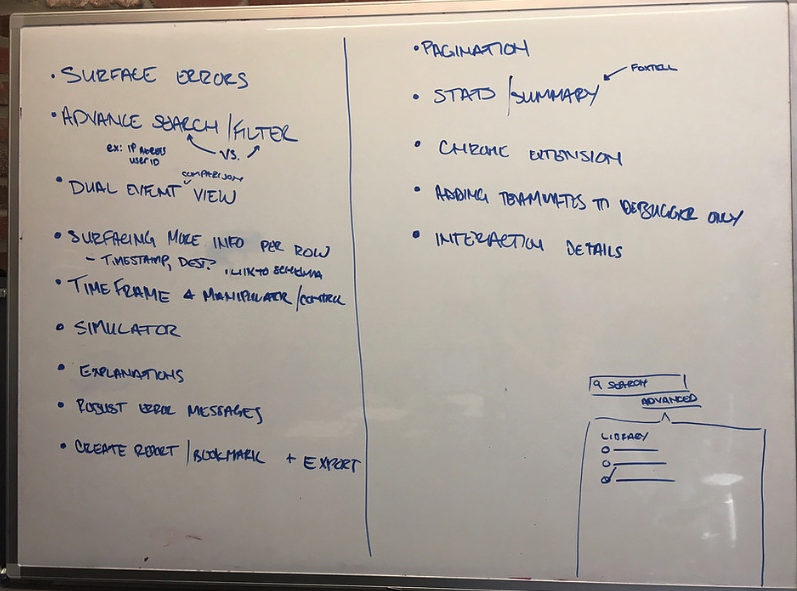 • SURFACE ERRORS
• ADVANCE SEARCH / FILTER
VS.
ex: IP ADDRESS
USER ID
COMPARISON
• DUAL EVENT VIEW
• SURFACING MORE INFO PER ROW
- TIMESTAMP, DEST?, LINK TO SCHEMA
• TIMEFRAME & MANIPULATOR / CONTROL
• SIMULATOR
• EXPLANATIONS
• ROBUST ERROR MESSAGES
• CREATE REPORT / BOOKMARK + EXPORT
• PAGINATION
• STATS / SUMMARY
• CHROME EXTENSION
• ADDING TEAMMATES TO DEBUGGER ONLY
• INTERACTION DETAILS
SEARCH
ADVANCED
LIBRARY